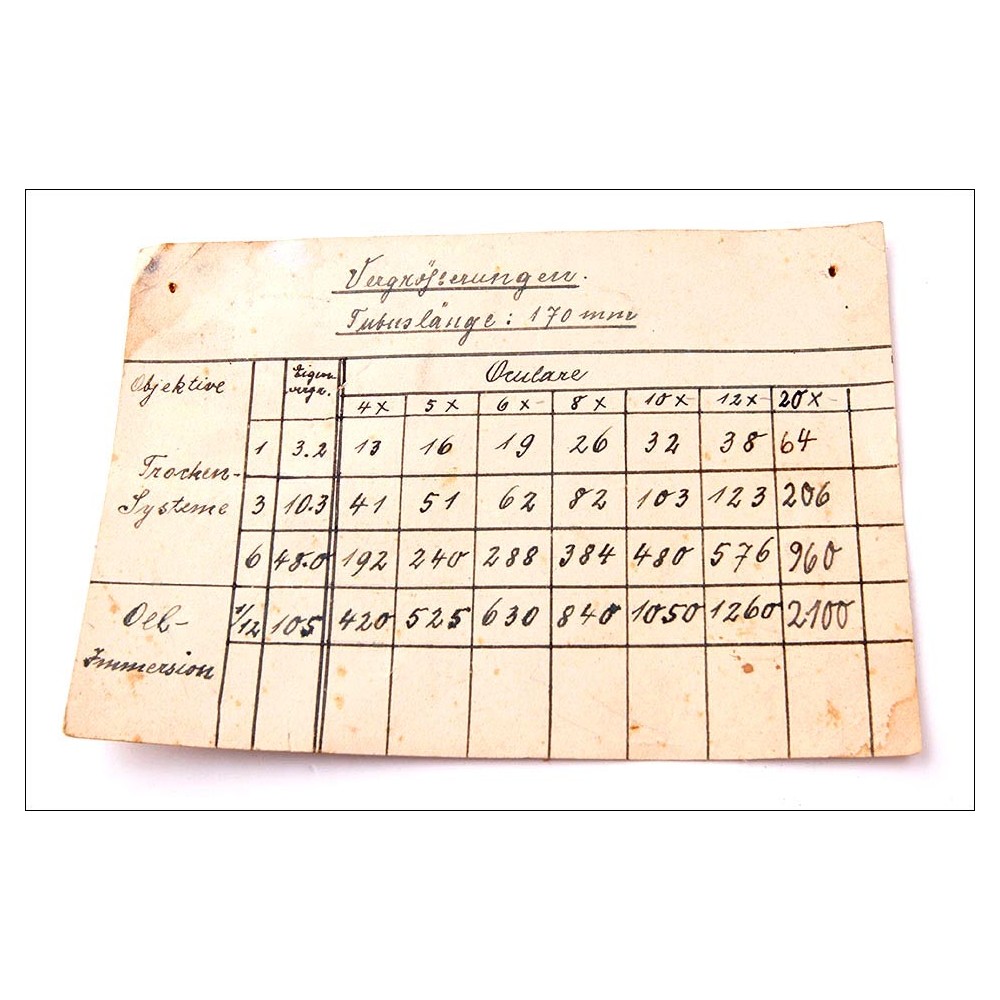 Vergrösserungen.
Tubuslänge: 170 mm
Objektive Eigen Oculare
vergr.
4x 5x 6x 8x 10x 12x 20x
1 3.2 13 16 19 26 32 38 64
Trocken-
Systeme 3 10.3 41 51 62 82 103 123 206
6 48.0 192 240 288 384 480 576 960
Oel- 1/12 105 420 525 630 840 1050 1260 2100
Immersion